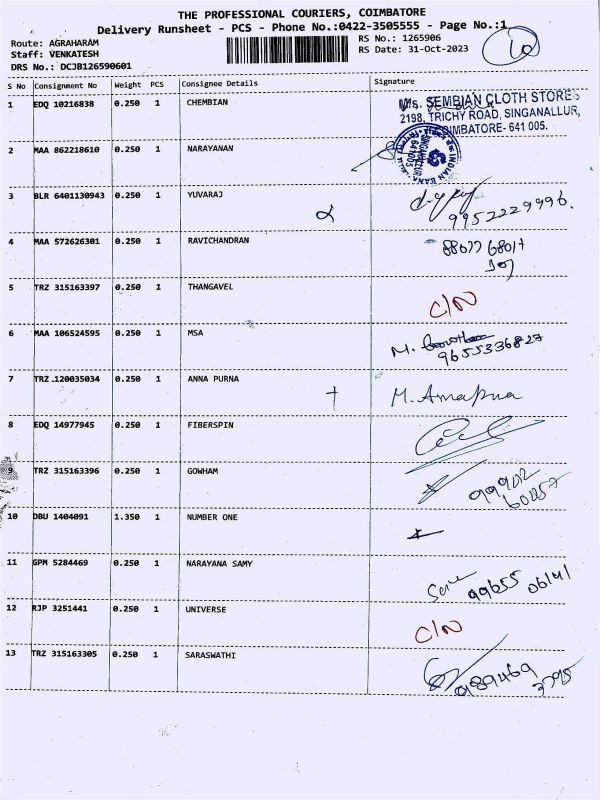 THE PROFESSIONAL COURIERS, COIMBATORE
Delivery Runsheet - PCS - Phone No.:0422-3505555 - Page No.:1
Route: AGRAHARAM
RS No.: 1265906
Staff: VENKATESH
RS Date: 31-Oct-2023
DRS No.: DCJB126590601
S No Consignment No Weight PCS Consignee Details Signature
1 EDQ 10216838 0.250 1 CHEMBIAN
M/s. SEMBIAN CLOTH STORES
2198, TRICHY ROAD, SINGANALLUR,
COIMBATORE- 641 005.
2 MAA 862218610 0.250 1 NARAYANAN
INDIAN BANK
641005
3 BLR 6401130943 0.250 1 YUVARAJ
9952229996.
4 MAA 572626301 0.250 1 RAVICHANDRAN
5 TRZ 315163397 0.250 1 THANGAVEL C/N
6 MAA 106524595 0.250 1 MSA M.
9655336827
7 TRZ.120035034 0.250 1 ANNA PURNA M.
8 EDQ 14977945 0.250 1 FIBERSPIN
9 TRZ 315163396 0.250 1 GOWHAM
10 DBU 1404091 1.350 1 NUMBER ONE
11 GPM 5284469 0.250 1 NARAYANA SAMY 99655 06141
12 RJP 3251441 0.250 1 UNIVERSE C/N
13 TRZ 315163305 0.250 1 SARASWATHI